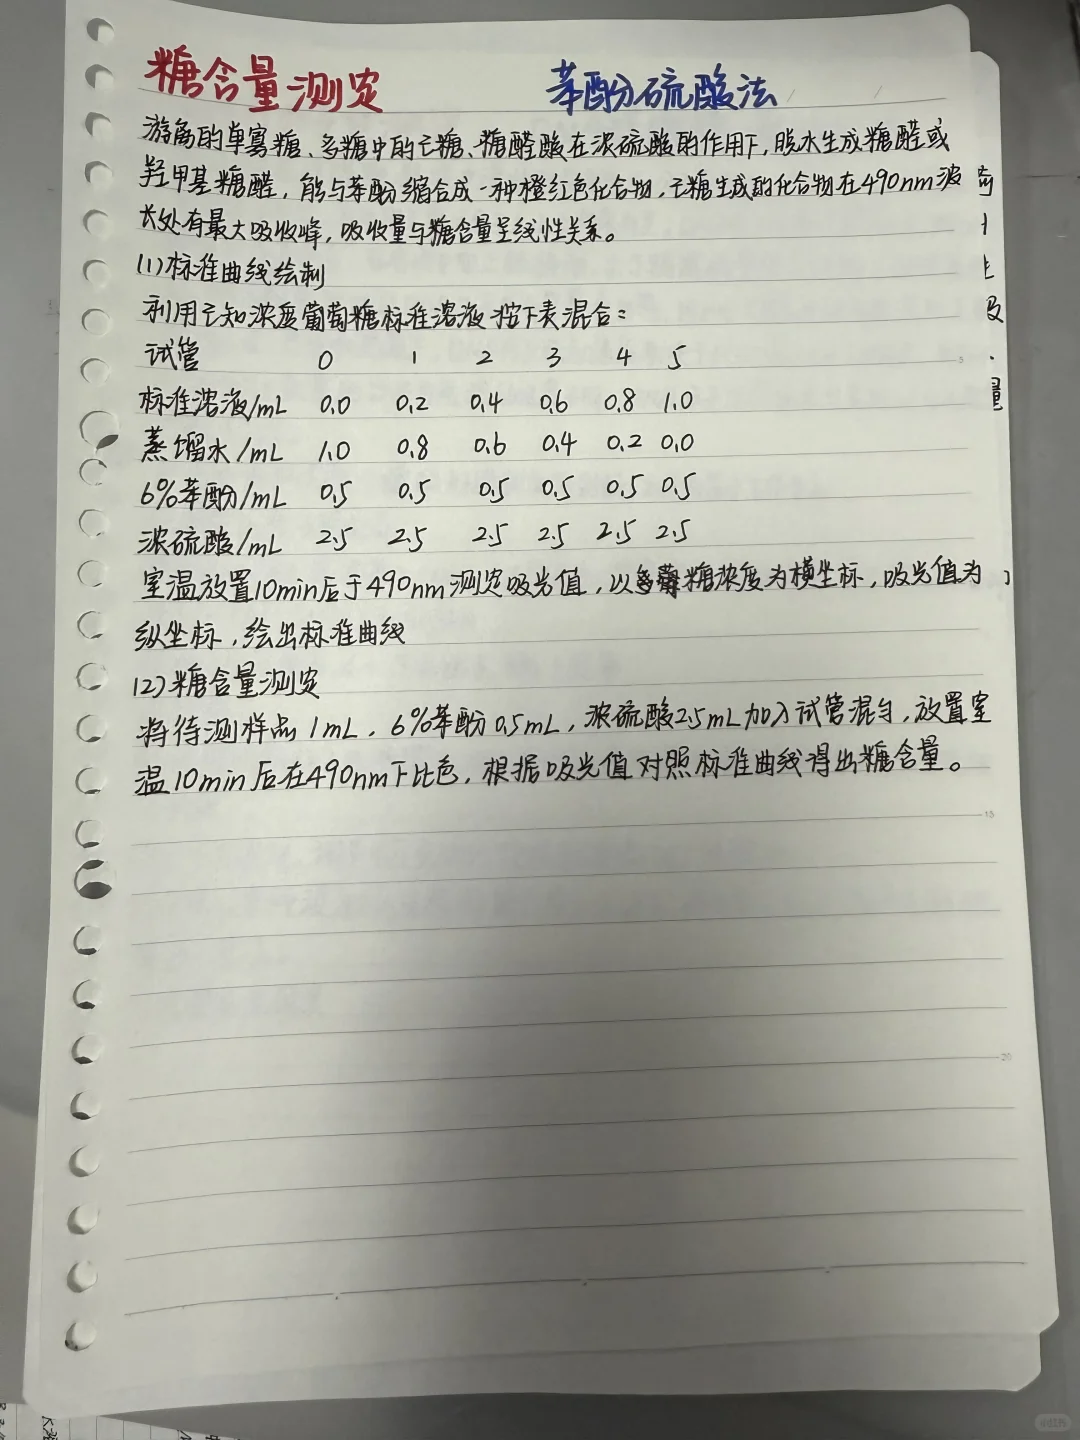 糖含量测定 苯酚硫酸法
游离的单寡糖、多糖中的己糖、糖醛酸在浓硫酸的作用下,脱水生成糖醛或
羟甲基糖醛,能与苯酚缩合成一种橙红色化合物,己糖生成的化合物在490nm波
长处有最大吸收峰,吸收量与糖含量呈线性关系。
(1)标准曲线绘制
利用已知浓度葡萄糖标准溶液按下表混合:
试管 0 1 2 3 4 5
标准溶液/mL 0.0 0.2 0.4 0.6 0.8 1.0
蒸馏水/mL 1.0 0.8 0.6 0.4 0.2 0.0
6%苯酚/mL 0.5 0.5 0.5 0.5 0.5 0.5
浓硫酸/mL 2.5 2.5 2.5 2.5 2.5 2.5
室温放置10min后于490nm测定吸光值,以多糖浓度为横坐标,吸光值为
纵坐标,绘出标准曲线
(2)糖含量测定
将待测样品1mL,6%苯酚0.5mL,浓硫酸2.5mL加入试管混匀,放置室
温10min后在490nm下比色,根据吸光值对照标准曲线得出糖含量。